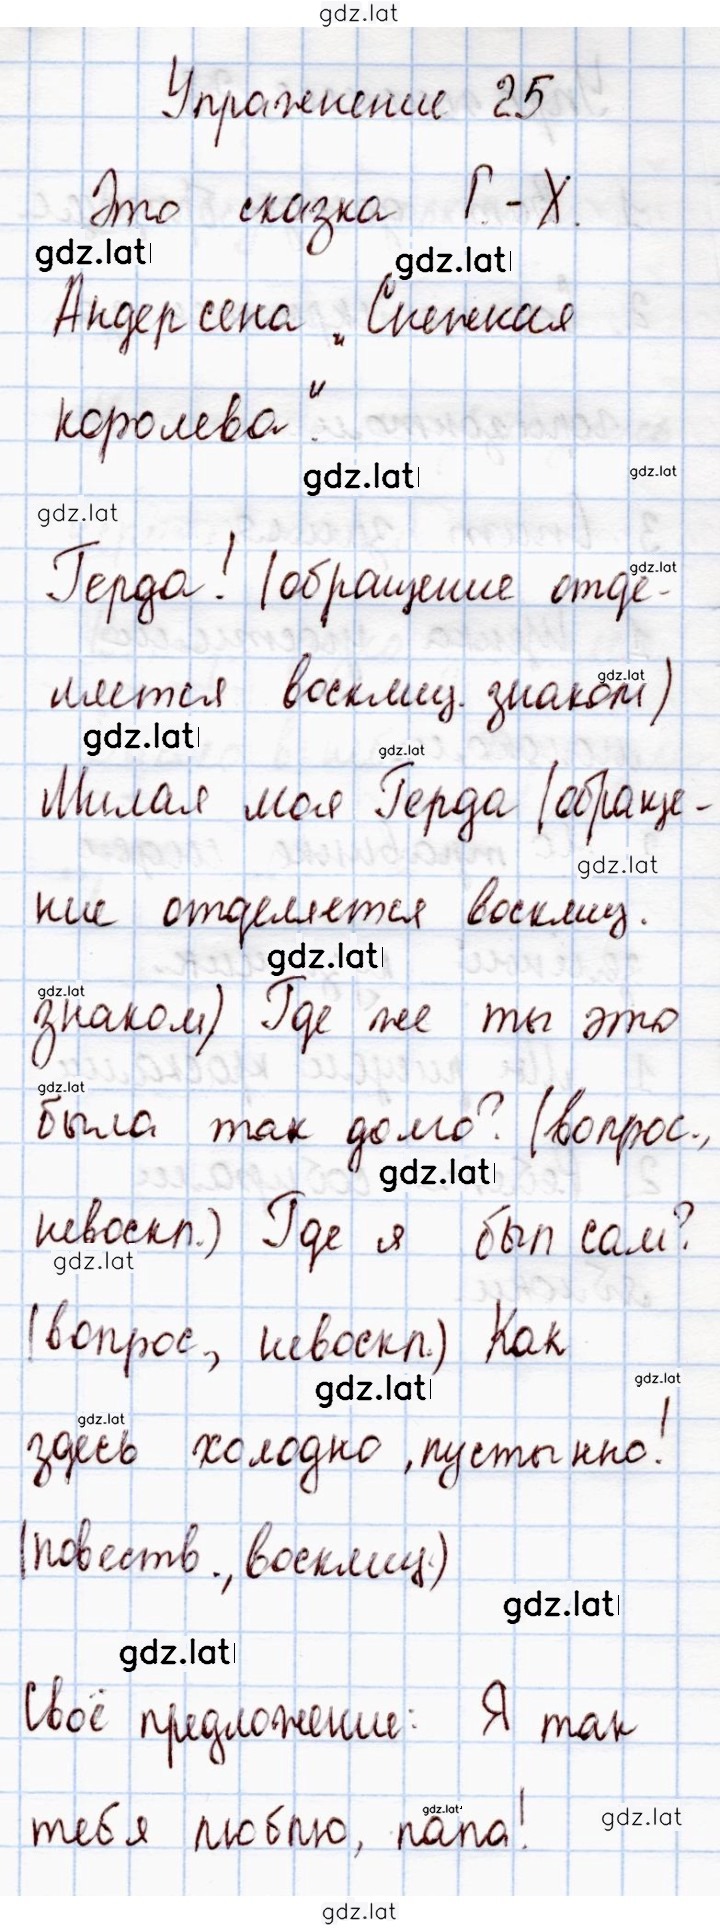 gdz.lat
Упражнение 25
Это сказка Г.-Х.
gdz.lat gdz.lat
Андерсена „Снежная
королева“.
gdz.lat gdz.lat
gdz.lat
gdz.lat
Герда! (обращение отде-
ляется восклиц. знаком)
gdz.lat
gdz.lat gdz.lat
Милая моя Герда (обраще-
gdz.lat
ние отделяется восклиц.
gdz.lat
gdz.lat
знаком) Где же ты это
gdz.lat
была так долго? (вопрос.,
gdz.lat
невоскл.) Где я был сам?
gdz.lat
(вопрос., невоскл.) Как
gdz.lat gdz.lat
gdz.lat
здесь холодно, пустынно!
(повеств., восклиц.)
gdz.lat
gdz.lat
Своё предложение: Я так
gdz.lat gdz.lat
тебя люблю, папа!
gdz.lat